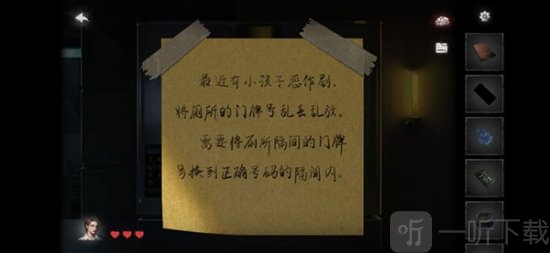 最近有小孩子恶作剧，
将厕所的门牌号乱丢乱放。
需要将厕所隔间的门牌
号换到正确号码的隔间内。
听 一听下载